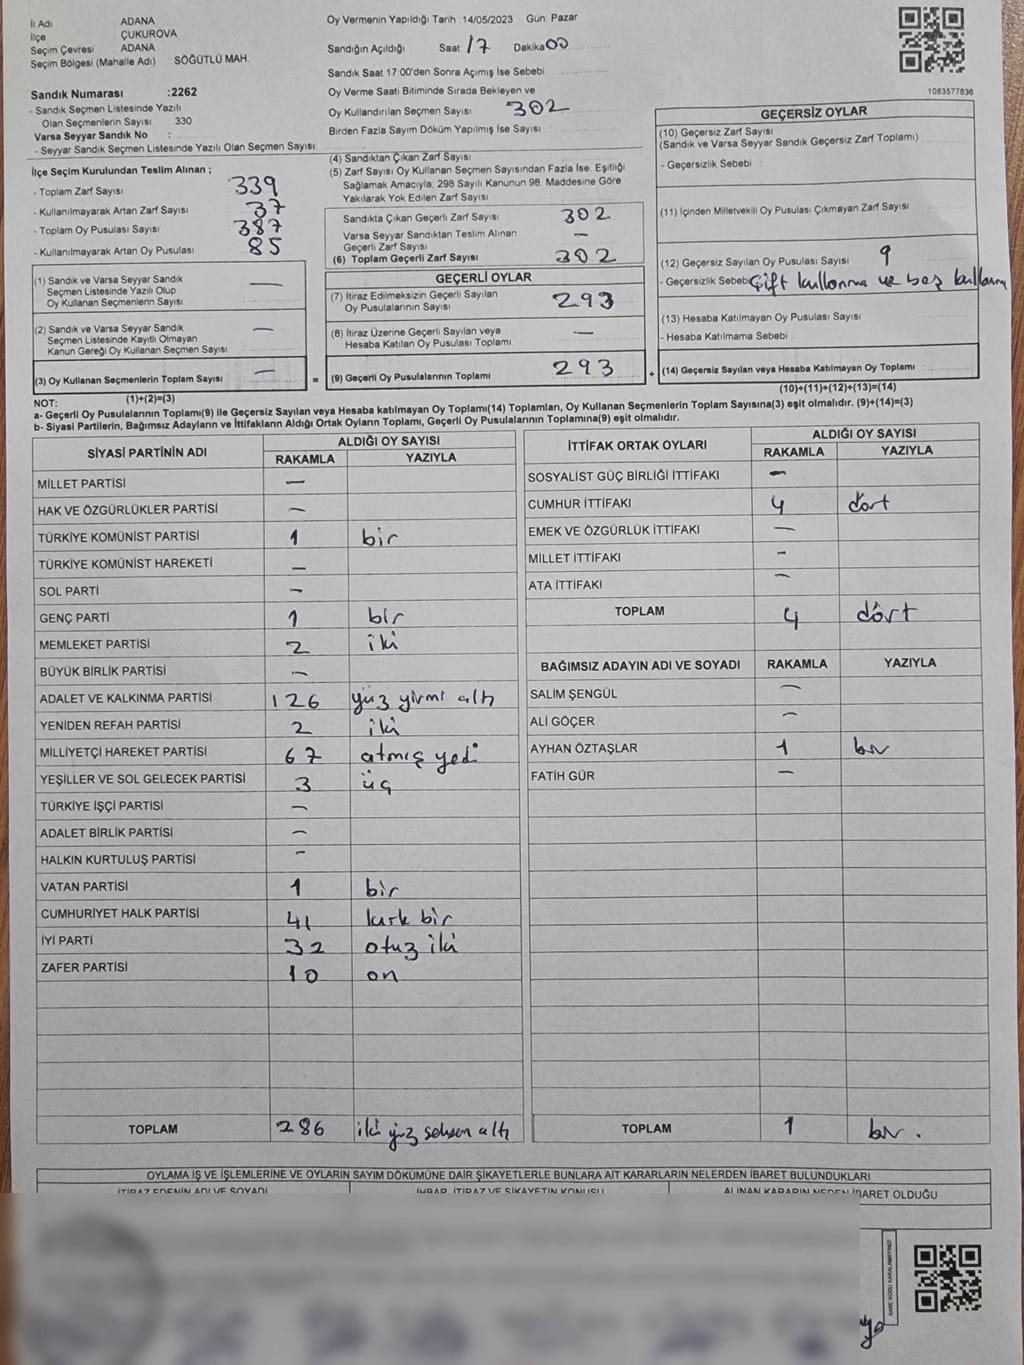 İl Adı ADANA
İlçe ÇUKUROVA
Seçim Çevresi ADANA
Seçim Bölgesi (Mahalle Adı) SÖĞÜTLÜ MAH.
Sandık Numarası :2262
- Sandık Seçmen Listesinde Yazılı
Olan Seçmenlerin Sayısı : 330
Varsa Seyyar Sandık No :
- Seyyar Sandık Seçmen Listesinde Yazılı Olan Seçmen Sayısı:
İlçe Seçim Kurulundan Teslim Alınan ;
- Toplam Zarf Sayısı 339
- Kullanılmayarak Artan Zarf Sayısı 37
- Toplam Oy Pusulası Sayısı 387
- Kullanılmayarak Artan Oy Pusulası 85
(1) Sandık ve Varsa Seyyar Sandık
Seçmen Listesinde Yazılı Olup
Oy Kullanan Seçmenlerin Sayısı —
(2) Sandık ve Varsa Seyyar Sandık
Seçmen Listesinde Kayıtlı Olmayan
Kanun Gereği Oy Kullanan Seçmen Sayısı —
(3) Oy Kullanan Seçmenlerin Toplam Sayısı —
(1)+(2)=(3)
Oy Vermenin Yapıldığı Tarih :14/05/2023 Gün: Pazar
Sandığın Açıldığı Saat: 17 Dakika 00
Sandık Saat 17:00'den Sonra Açımış İse Sebebi
Oy Verme Saati Bitiminde Sırada Bekleyen ve
Oy Kullandırılan Seçmen Sayısı 302
Birden Fazla Sayım Döküm Yapılmış İse Sayısı :
(4) Sandıktan Çıkan Zarf Sayısı
(5) Zarf Sayısı Oy Kullanan Seçmen Sayısından Fazla İse, Eşitliği
Sağlamak Amacıyla; 298 Sayılı Kanunun 98. Maddesine Göre
Yakılarak Yok Edilen Zarf Sayısı
Sandıkta Çıkan Geçerli Zarf Sayısı 302
Varsa Seyyar Sandıktan Teslim Alınan
Geçerli Zarf Sayısı —
(6) Toplam Geçerli Zarf Sayısı 302
GEÇERLİ OYLAR
(7) İtiraz Edilmeksizin Geçerli Sayılan
Oy Pusulalarının Sayısı 293
(8) İtiraz Üzerine Geçerli Sayılan veya
Hesaba Katılan Oy Pusulası Toplamı —
= (9) Geçerli Oy Pusulalarının Toplamı 293 +
1083577836
GEÇERSİZ OYLAR
(10) Geçersiz Zarf Sayısı
(Sandık ve Varsa Seyyar Sandık Geçersiz Zarf Toplamı)
- Geçersizlik Sebebi :
(11) İçinden Milletvekili Oy Pusulası Çıkmayan Zarf Sayısı
(12) Geçersiz Sayılan Oy Pusulası Sayısı 9
- Geçersizlik Sebebi çift kullanma ve boş kullanma
(13) Hesaba Katılmayan Oy Pusulası Sayısı
- Hesaba Katılmama Sebebi
(14) Geçersiz Sayılan veya Hesaba Katılmayan Oy Toplamı :
(10)+(11)+(12)+(13)=(14)
NOT:
a- Geçerli Oy Pusulalarının Toplamı(9) ile Geçersiz Sayılan veya Hesaba katılmayan Oy Toplamı(14) Toplamları, Oy Kullanan Seçmenlerin Toplam Sayısına(3) eşit olmalıdır. (9)+(14)=(3)
b- Siyasi Partilerin, Bağımsız Adayların ve İttifakların Aldığı Ortak Oyların Toplamı, Geçerli Oy Pusulalarının Toplamına(9) eşit olmalıdır.
SİYASİ PARTİNİN ADI ALDIĞI OY SAYISI
RAKAMLA YAZIYLA
MİLLET PARTİSİ —
HAK VE ÖZGÜRLÜKLER PARTİSİ —
TÜRKİYE KOMÜNİST PARTİSİ 1 bir
TÜRKİYE KOMÜNİST HAREKETİ —
SOL PARTİ —
GENÇ PARTİ 1 bir
MEMLEKET PARTİSİ 2 iki
BÜYÜK BİRLİK PARTİSİ —
ADALET VE KALKINMA PARTİSİ 126 yüz yirmi altı
YENİDEN REFAH PARTİSİ 2 iki
MİLLİYETÇİ HAREKET PARTİSİ 67 atmış yedi
YEŞİLLER VE SOL GELECEK PARTİSİ 3 üç
TÜRKİYE İŞÇİ PARTİSİ —
ADALET BİRLİK PARTİSİ —
HALKIN KURTULUŞ PARTİSİ —
VATAN PARTİSİ 1 bir
CUMHURİYET HALK PARTİSİ 41 kırk bir
İYİ PARTİ 32 otuz iki
ZAFER PARTİSİ 10 on
TOPLAM 286 iki yüz seksen altı
İTTİFAK ORTAK OYLARI ALDIĞI OY SAYISI
RAKAMLA YAZIYLA
SOSYALİST GÜÇ BİRLİĞİ İTTİFAKI —
CUMHUR İTTİFAKI 4 dört
EMEK VE ÖZGÜRLÜK İTTİFAKI —
MİLLET İTTİFAKI —
ATA İTTİFAKI —
TOPLAM 4 dört
BAĞIMSIZ ADAYIN ADI VE SOYADI RAKAMLA YAZIYLA
SALİM ŞENGÜL —
ALİ GÖÇER —
AYHAN ÖZTAŞLAR 1 bir
FATİH GÜR —
TOPLAM 1 bir.
OYLAMA İŞ VE İŞLEMLERİNE VE OYLARIN SAYIM DÖKÜMÜNE DAİR ŞİKAYETLERLE BUNLARA AİT KARARLARIN NELERDEN İBARET BULUNDUKLARI
İTİRAZ EDENİN ADI VE SOYADI İHBAR, İTİRAZ VE ŞİKAYETİN KONUSU ALINAN KARARIN NEDEN İBARET OLDUĞU
KARE KODU KARALAMAYINIZ!